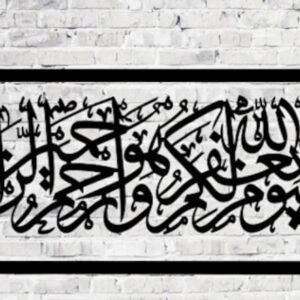 يوم يغفر الله لكم وهو أرحم الراحمين